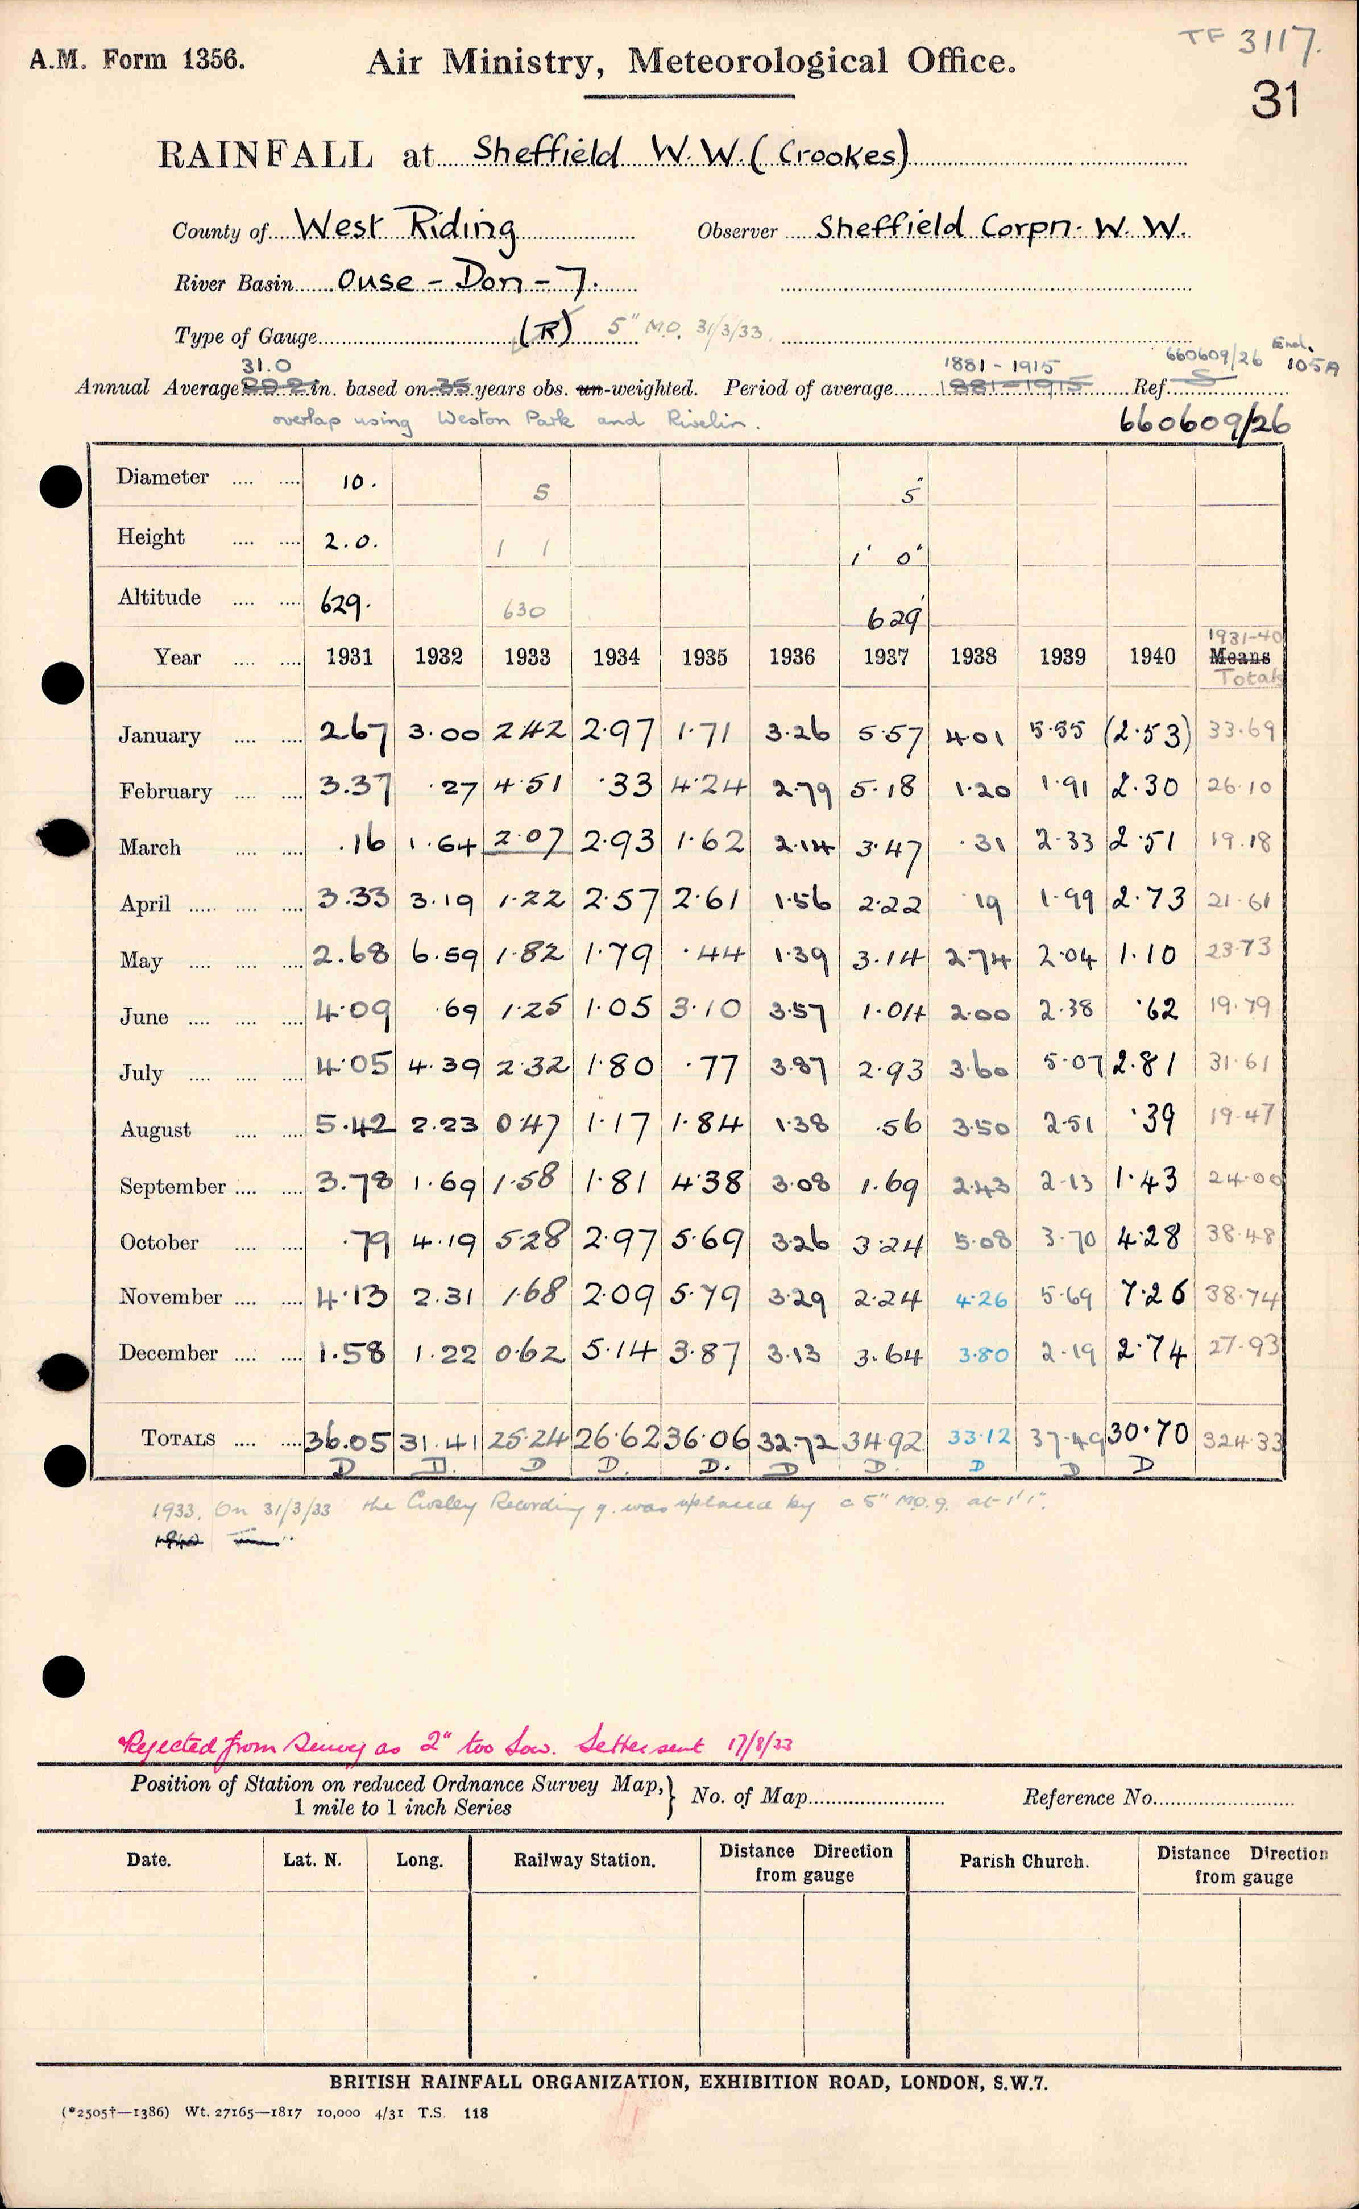 TF 3117.
A.M. Form 1356. Air Ministry, Meteorological Office.
31
RAINFALL at Sheffield W.W. (Crookes)
County of West Riding Observer Sheffield Corpn. W.W.
River Basin Ouse - Don - 7.
Type of Gauge (R) 5" M.O. 31/3/33.
31.0 1881 - 1915 660609/26 Encl. 105A
Annual Average in. based on 35 years obs. un-weighted. Period of average 1881-1915 Ref. S
overlap using Weston Park and Rivelin. 660609/26
Diameter .... .... 10. 5 5"
Height .... .... 2.0. 1 1 1' 0"
Altitude .... .... 629. 630 629
1931-40
Year .... .... 1931 1932 1933 1934 1935 1936 1937 1938 1939 1940 Means
Totals
January .... .... 2.67 3.00 2.42 2.97 1.71 3.26 5.57 4.01 5.55 (2.53) 33.69
February .... .... 3.37 .27 4.51 .33 4.24 2.79 5.18 1.20 1.91 2.30 26.10
March .... .... .16 1.64 2.07 2.93 1.62 2.14 3.47 .31 2.33 2.51 19.18
April .... .... .... 3.33 3.19 1.22 2.57 2.61 1.56 2.22 .19 1.99 2.73 21.61
May .... .... .... 2.68 6.59 1.82 1.79 .44 1.39 3.14 2.74 2.04 1.10 23.73
June .... .... .... 4.09 .69 1.25 1.05 3.10 3.57 1.04 2.00 2.38 .62 19.79
July .... .... .... 4.05 4.39 2.32 1.80 .77 3.87 2.93 3.60 5.07 2.81 31.61
August .... .... 5.42 2.23 0.47 1.17 1.84 1.38 .56 3.50 2.51 .39 19.47
September .... .... 3.78 1.69 1.58 1.81 4.38 3.08 1.69 2.43 2.13 1.43 24.00
October .... .... .79 4.19 5.28 2.97 5.69 3.26 3.24 5.08 3.70 4.28 38.48
November .... .... 4.13 2.31 1.68 2.09 5.79 3.29 2.24 4.26 5.69 7.26 38.74
December .... .... 1.58 1.22 0.62 5.14 3.87 3.13 3.64 3.80 2.19 2.74 27.93
TOTALS .... .... 36.05 31.41 25.24 26.62 36.06 32.72 34.92 33.12 37.49 30.70 324.33
D D. D D. D. D D. D D D
1933. On 31/3/33 the Casley Recording g. was replaced by a 5" M.O. g. at 1'1".
Rejected from Survey as 2" too low. Letter sent 17/8/33
Position of Station on reduced Ordnance Survey Map, } No. of Map Reference No.
1 mile to 1 inch Series
Date. Lat. N. Long. Railway Station. Distance Direction from gauge Parish Church. Distance Direction from gauge
BRITISH RAINFALL ORGANIZATION, EXHIBITION ROAD, LONDON, S.W.7.
(*2505†—1386) Wt. 27165—1817 10,000 4/31 T.S. 118